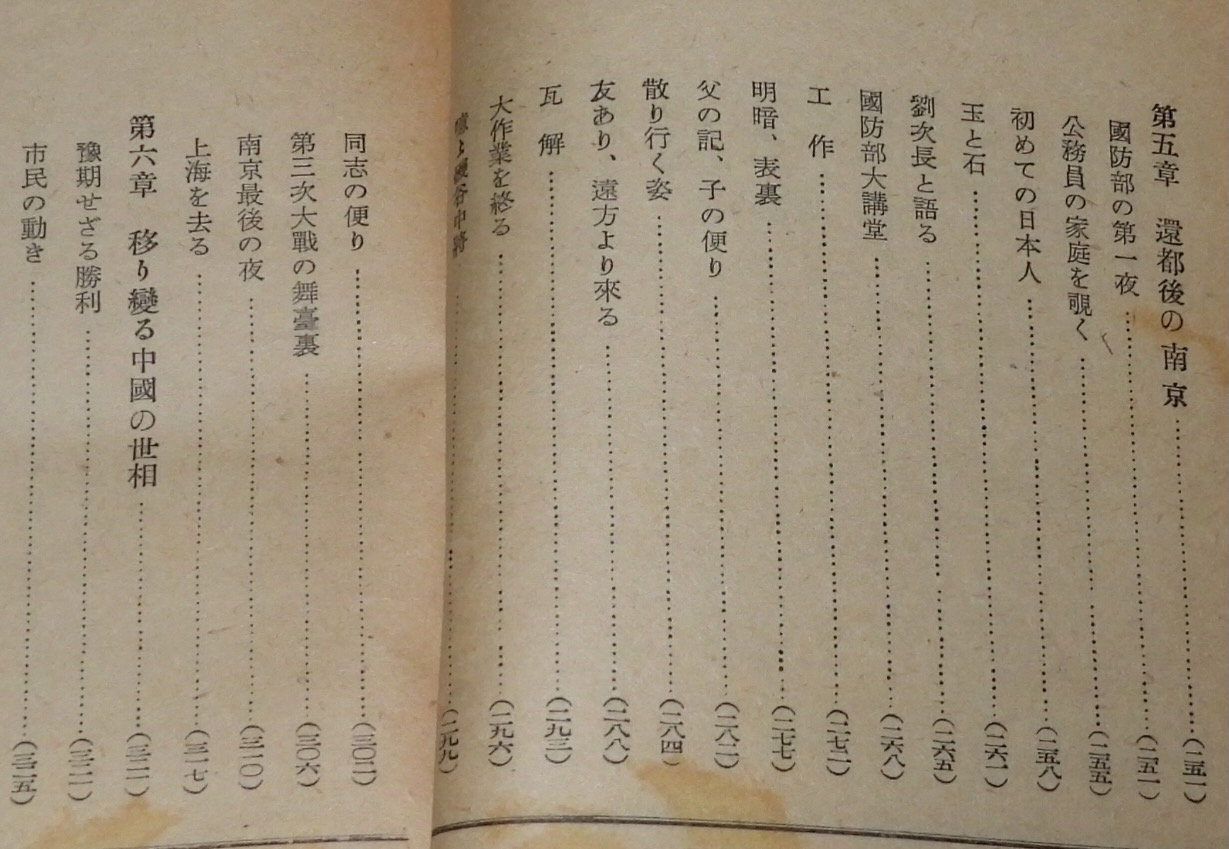 第五章 還都後の南京……(二五一)
國防部の第一夜……(二五一)
公務員の家庭を覗く……(二五五)
初めての日本人……(二五八)
玉と石……(二六一)
劉次長と語る……(二六五)
國防部大講堂……(二六八)
工作……(二七二)
明暗、表裏……(二七七)
父の記、子の便り……(二八二)
散り行く姿……(二八四)
友あり、遠方より來る……(二八八)
瓦解……(二九三)
大作業を終る……(二九六)
と磯谷中將……(二九九)
同志の便り……(三〇二)
第三次大戰の舞臺裏……(三〇六)
南京最後の夜……(三一〇)
上海を去る……(三一七)
第六章 移り變る中國の世相……(三二一)
豫期せざる勝利……(三二一)
市民の動き……(三二五)